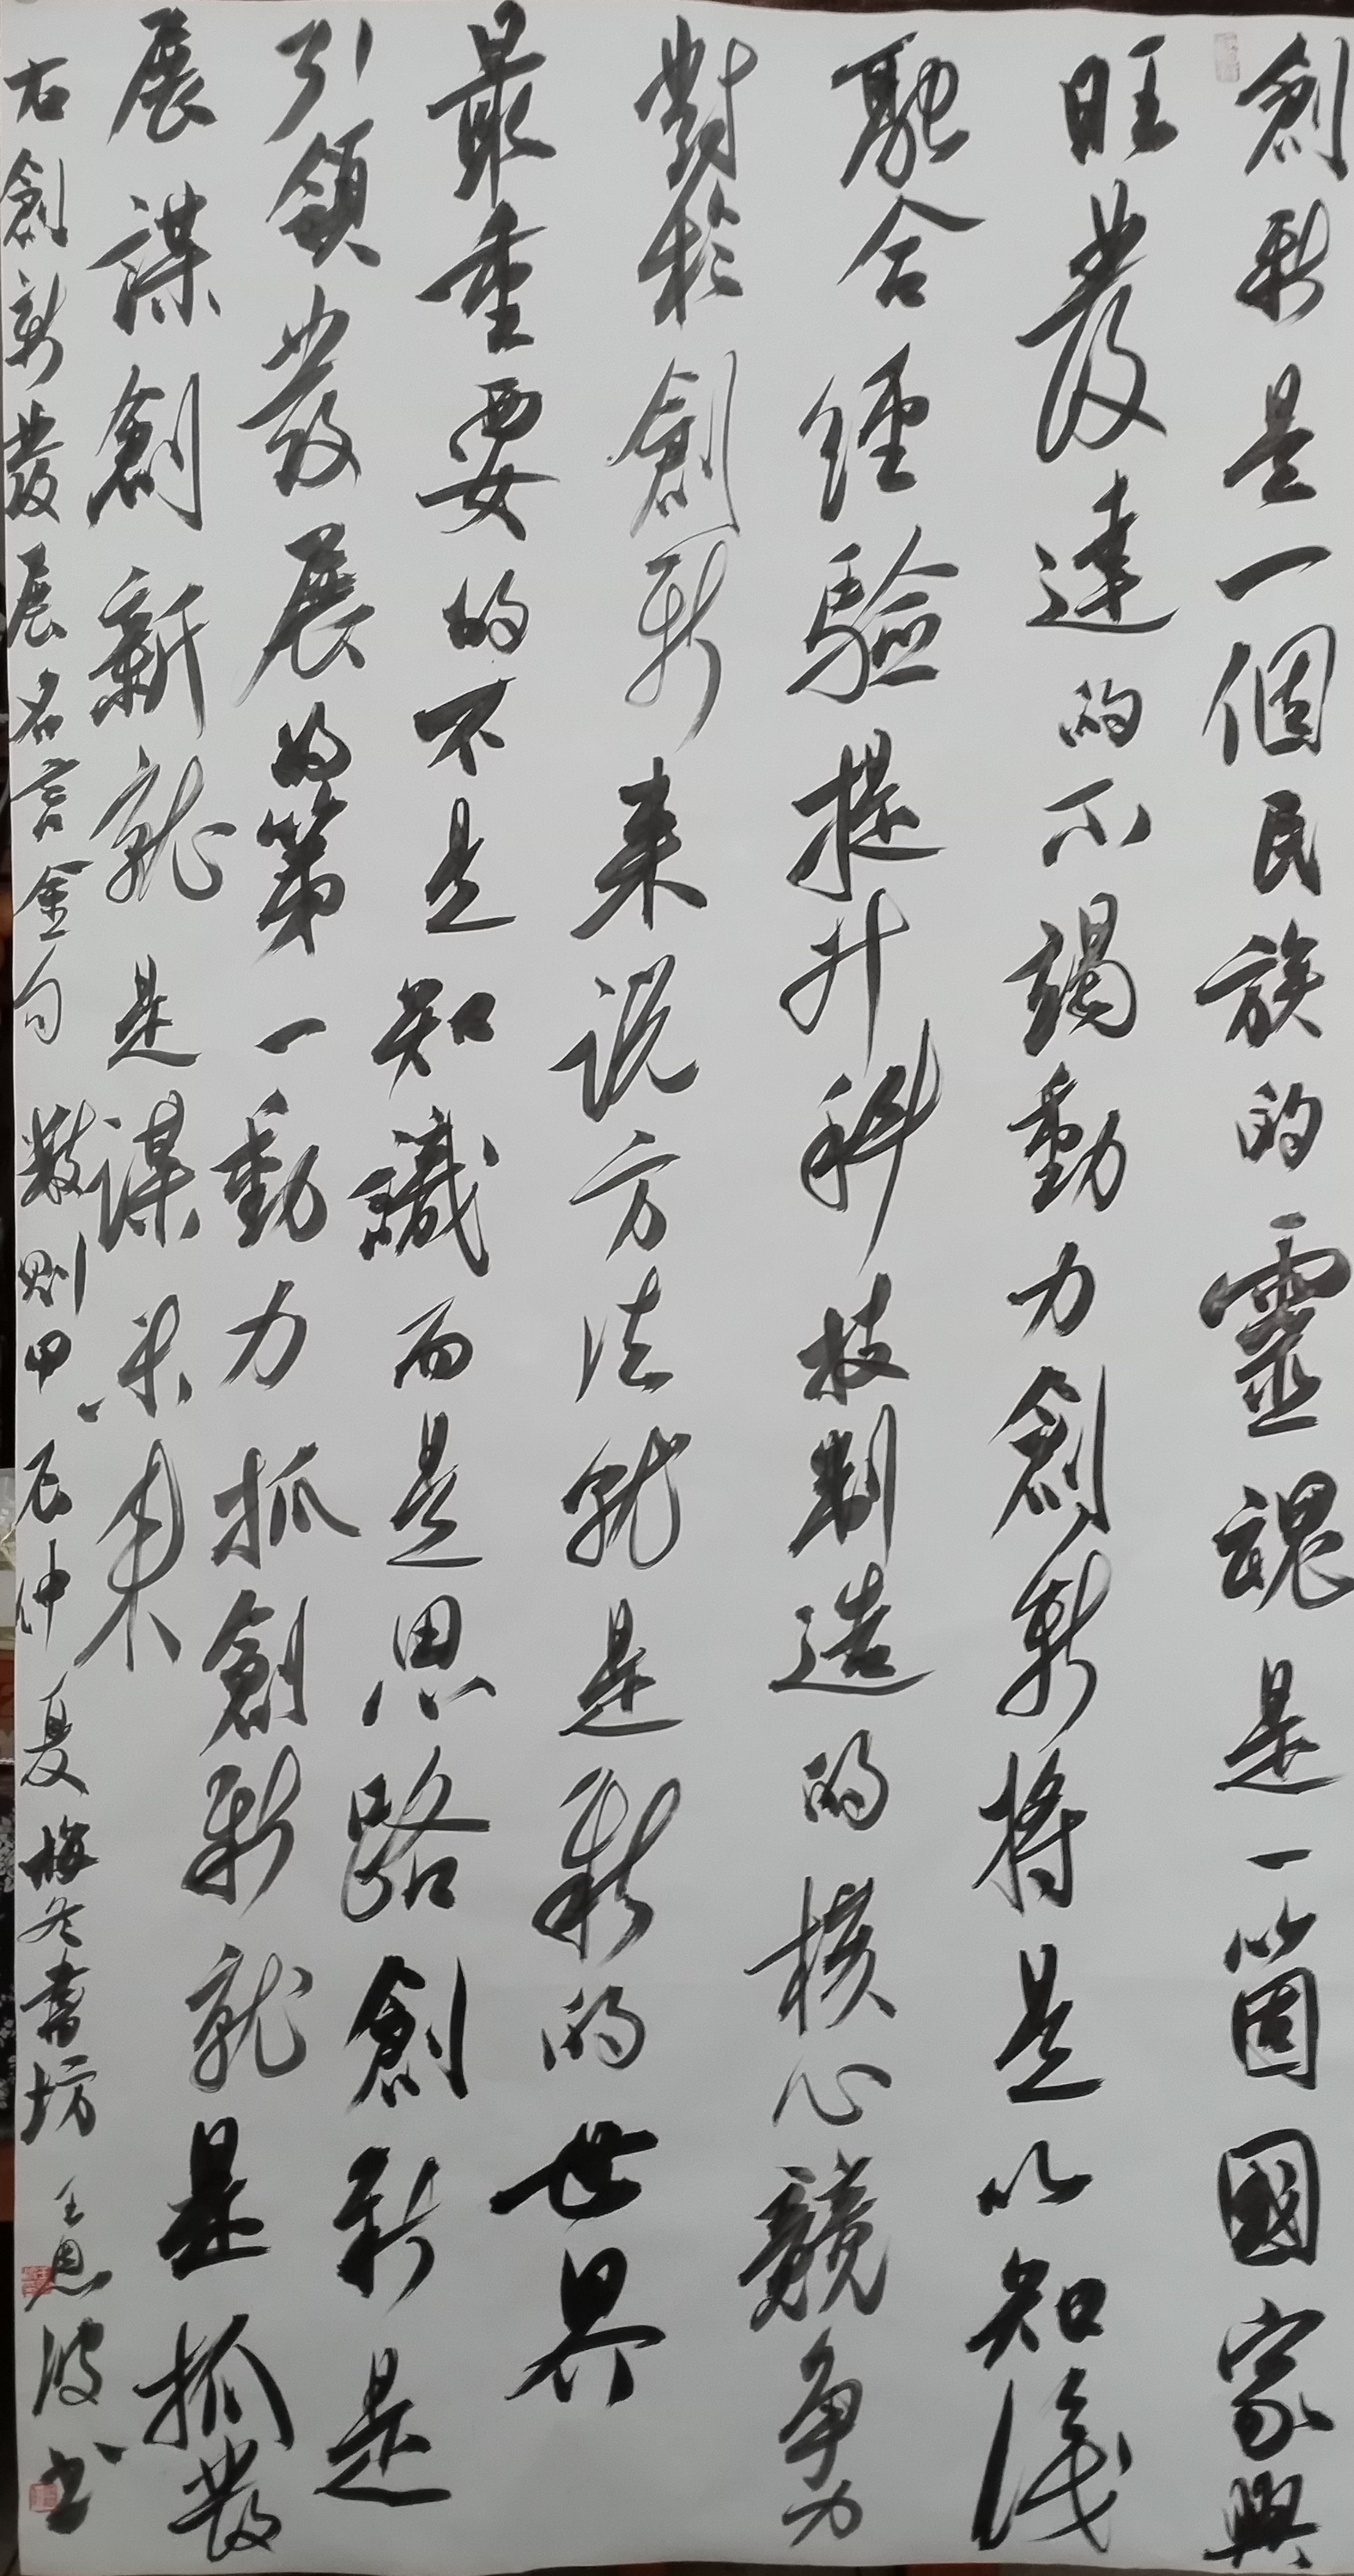 創新是一個民族的靈魂是一箇國家興
旺發達的不竭動力創新將是以知識
融合經驗提升科技制造的核心競争力
對於創新来説方法就是新的世界
最重要的不是知識而是思路創新是
引領發展的第一動力抓創新就是抓發
展謀創新就是謀未来
右創新發展名言金句數則甲辰仲夏梅冬書坊王恩波书